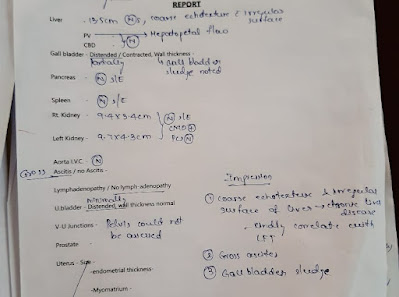 REPORT
Liver - 13.5cm (N) S, coarse echotexture & irregular surface
PV → Hepatopetal flow
CBD - (N)
Gall bladder - Distended / Contracted, Wall thickness -
partially
Gall bladder sludge noted
Pancreas - (N) S/E
Spleen - (N) S/E
Rt. Kidney - 9.4 x 3.4cm (N) S/E
Left Kidney - 9.7 x 4.3cm
CMD +
PCS (N)
Aorta I.V.C. (N)
GROSS Ascitis / no Ascitis -
Lymphadenopathy / No lymph-adenopathy
minimally
U.bladder - Distended, wall thickness normal
V-U Junctions - Pelvis could not be assessed
Prostate -
Uterus - Size -
-endometrial thickness-
-Myomatrium -
Impression
① coarse echotexture & irregular surface of liver → chronic liver disease
- kindly correlate with LFT
② Gross ascites
③ Gall bladder sludge